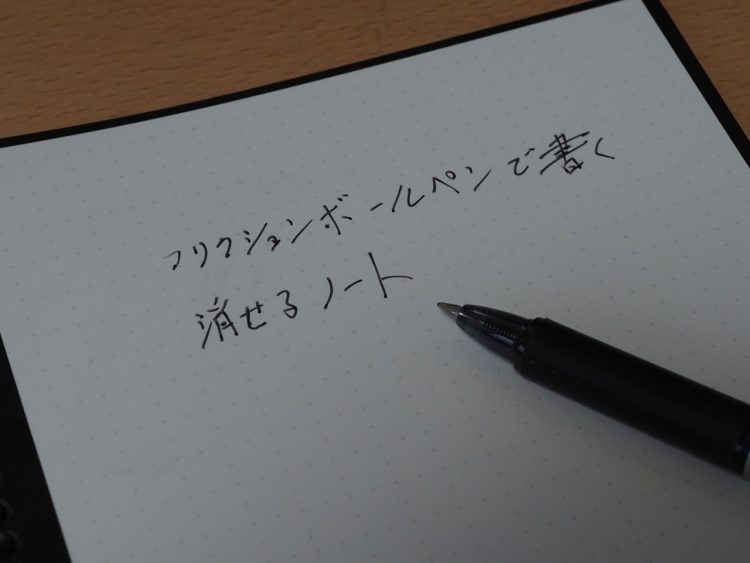 フリクションボールペンで書く
消せるノート